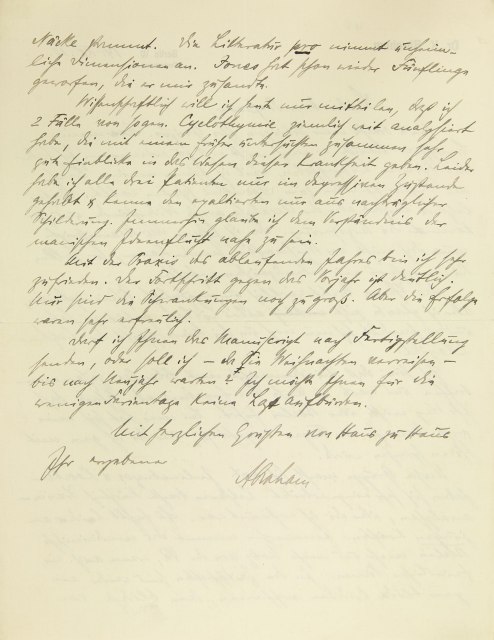 Näcke stammt. Die Litteratur pro nimmt unheim-
liche Dimensionen an. Jones hat schon wieder Fünflinge
geworfen, die er mir zusandte.
Wissenschaftlich will ich heute nur mitteilen, daß ich
2 Fälle von sogen. Cyclothymie ziemlich weit analysiert
habe, die mit einem früher untersuchten zusammen sehr
gute Einblicke in das Wesen dieser Krankheit geben. Leider
habe ich alle drei Patienten nur im depressiven Zustande
gehabt & kenne den exaltierten nur aus nachträglicher
Schilderung. Immerhin glaube ich dem Verständnis der
manischen Ideenflucht nahe zu sein.
Mit der Praxis des ablaufenden Jahres bin ich sehr
zufrieden. Der Fortschritt gegen das Vorjahr ist deutlich,
nur sind die Schwankungen noch zu groß. Aber die Erfolge
waren sehr erfreulich.
Darf ich Ihnen das Manuscript nach Fertigstellung
senden, oder soll ich — da Sie Weihnachten verreisen —
bis nach Neujahr warten? Ich möchte Ihnen für die
wenigen Ferientage keine Last aufbürden.
Mit herzlichen Grüßen von Haus zu Haus
Ihr ergebener
Abraham